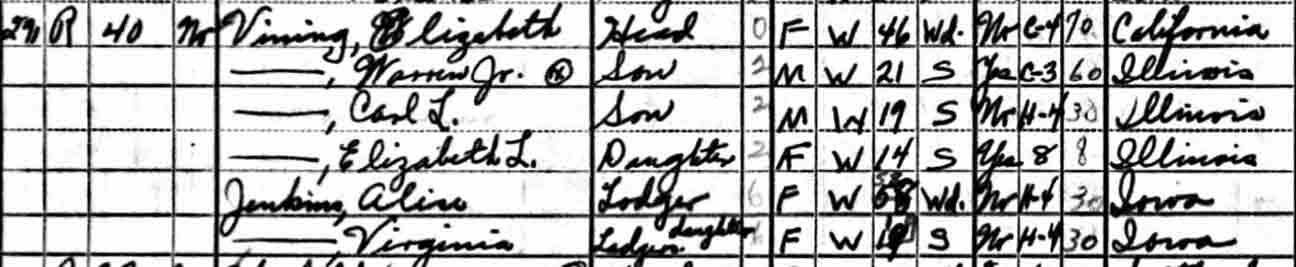 R 40 No Vining, Elizabeth Head 0 F W 46 Wd. No C-4 70 California
——, Warren Jr. Son 2 M W 21 S Yes C-3 60 Illinois
——, Carl L. Son 2 M W 19 S No H-4 30 Illinois
——, Elizabeth L. Daughter 2 F W 14 S Yes 8 8 Illinois
Jenkins, Alice Lodger 6 F W Wd. No H-4 30 Iowa
——, Virginia Lodgers daughter F W S No H-4 30 Iowa